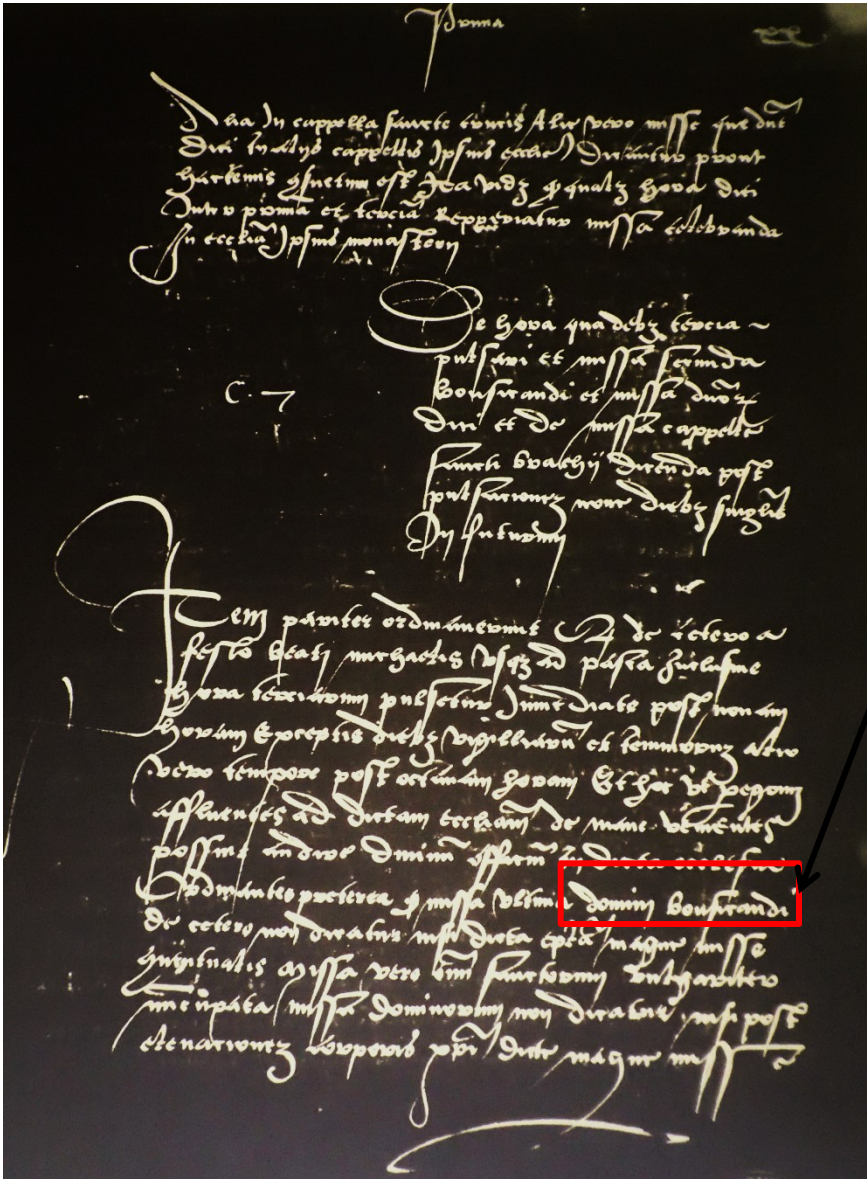 Prima
xx
Alia In cappella sancte crucis Alie vero misse que dnt
dici In alijs cappellis Ipsius ecclie Dicantur prout
hactenus 9suetum est Ita vidz qualz hora dici
Inter prima et tercia Reperiatur missa celebranda
In ecclia Ipsius monasterij
De hora qua debz tercia
pulsari et missa secunda
bousicandi et missa duorz
dici et de missa cappelle
sancti dicenda post
pulsacionez none diebz singlis
In futurum
C. 7
Item pariter ordinaverunt de cetero a
festo beati michaelis vsqz ad pasca Inclusive
hora terciarum pulsetur Immediate post nonam
horam Exceptis diebz vigilliarum et Ieiuniorum alio
vero tempore post octavam horam Et hoc vt
affluentes ad dictam eccliam de mane venientes
possint audire divinu officiu In dicta
Ordinantes preterea missa vltima domini bousicandi
de cetero non dicatur nisi dicta epla magne misse
missa vero oim sanctorum vulgariter
nuncupata missa dominorum non dicatur nisi post
elevacionez corporis xpi dicte magne misse